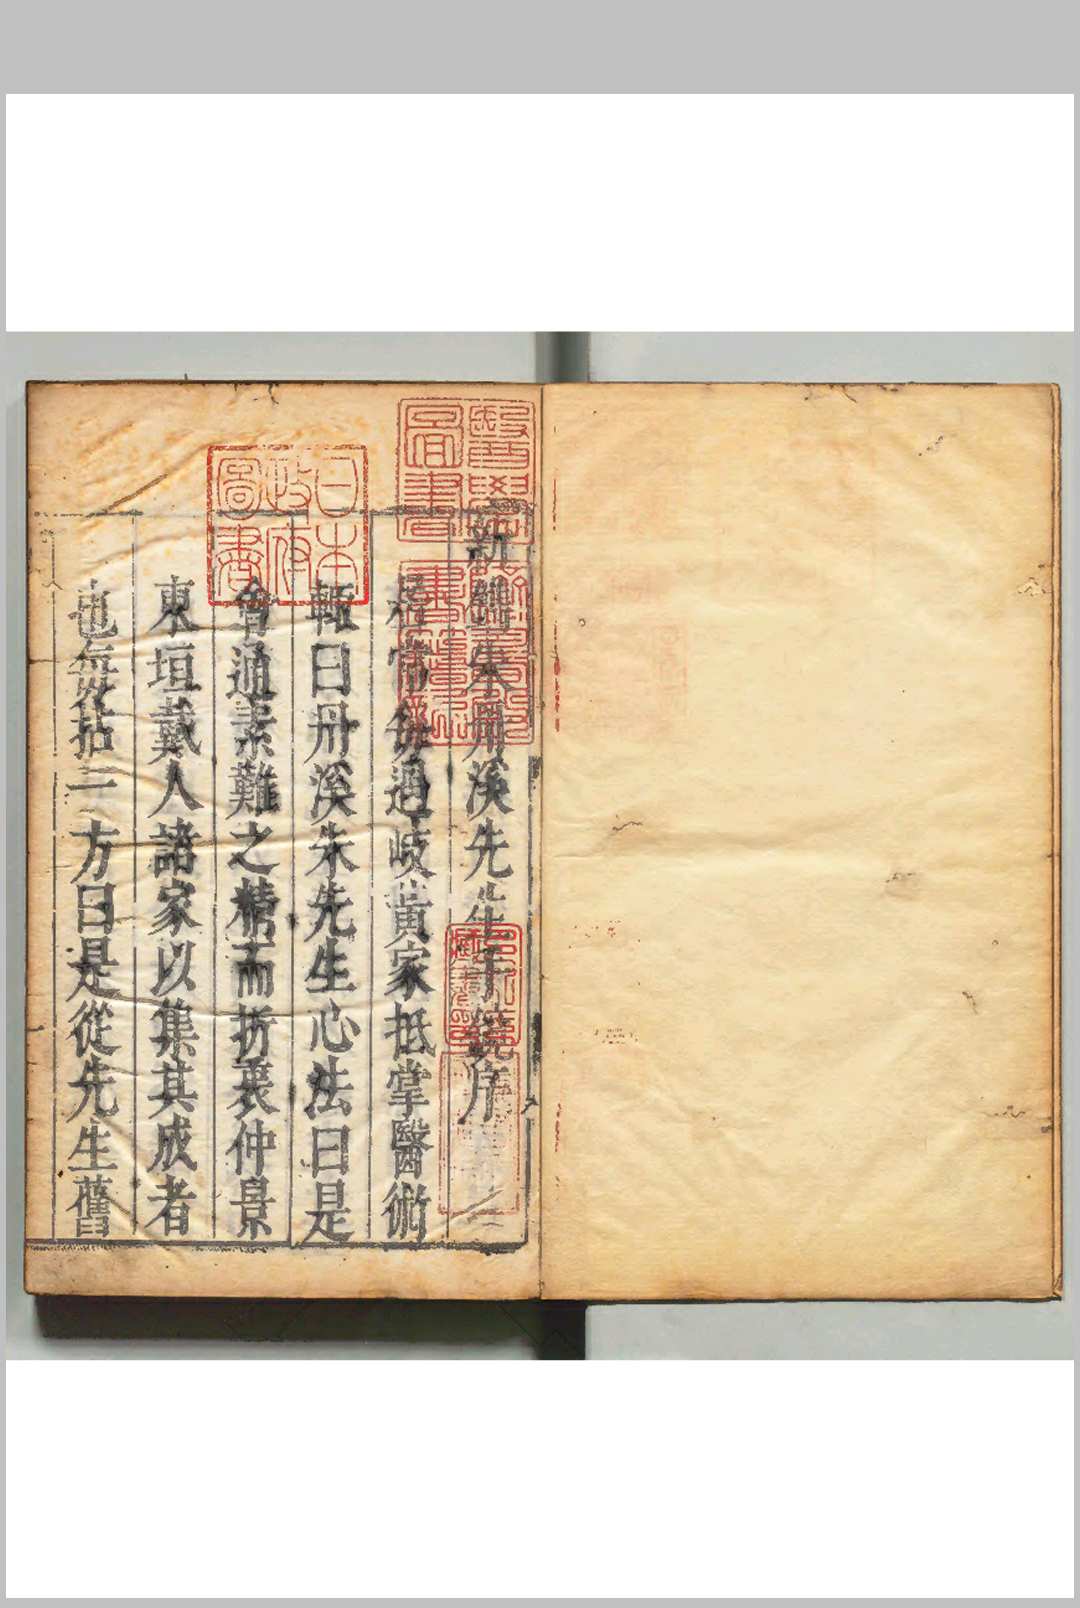 新鐫朱丹溪先生
序
常每過岐黃家抵掌醫術
輙曰丹溪朱先生心法曰是
會通素難之精而折衷仲景
東垣戴人諸家以集其成者
也每拈一方曰是從先生舊
日本政府圖書
醫學圖書